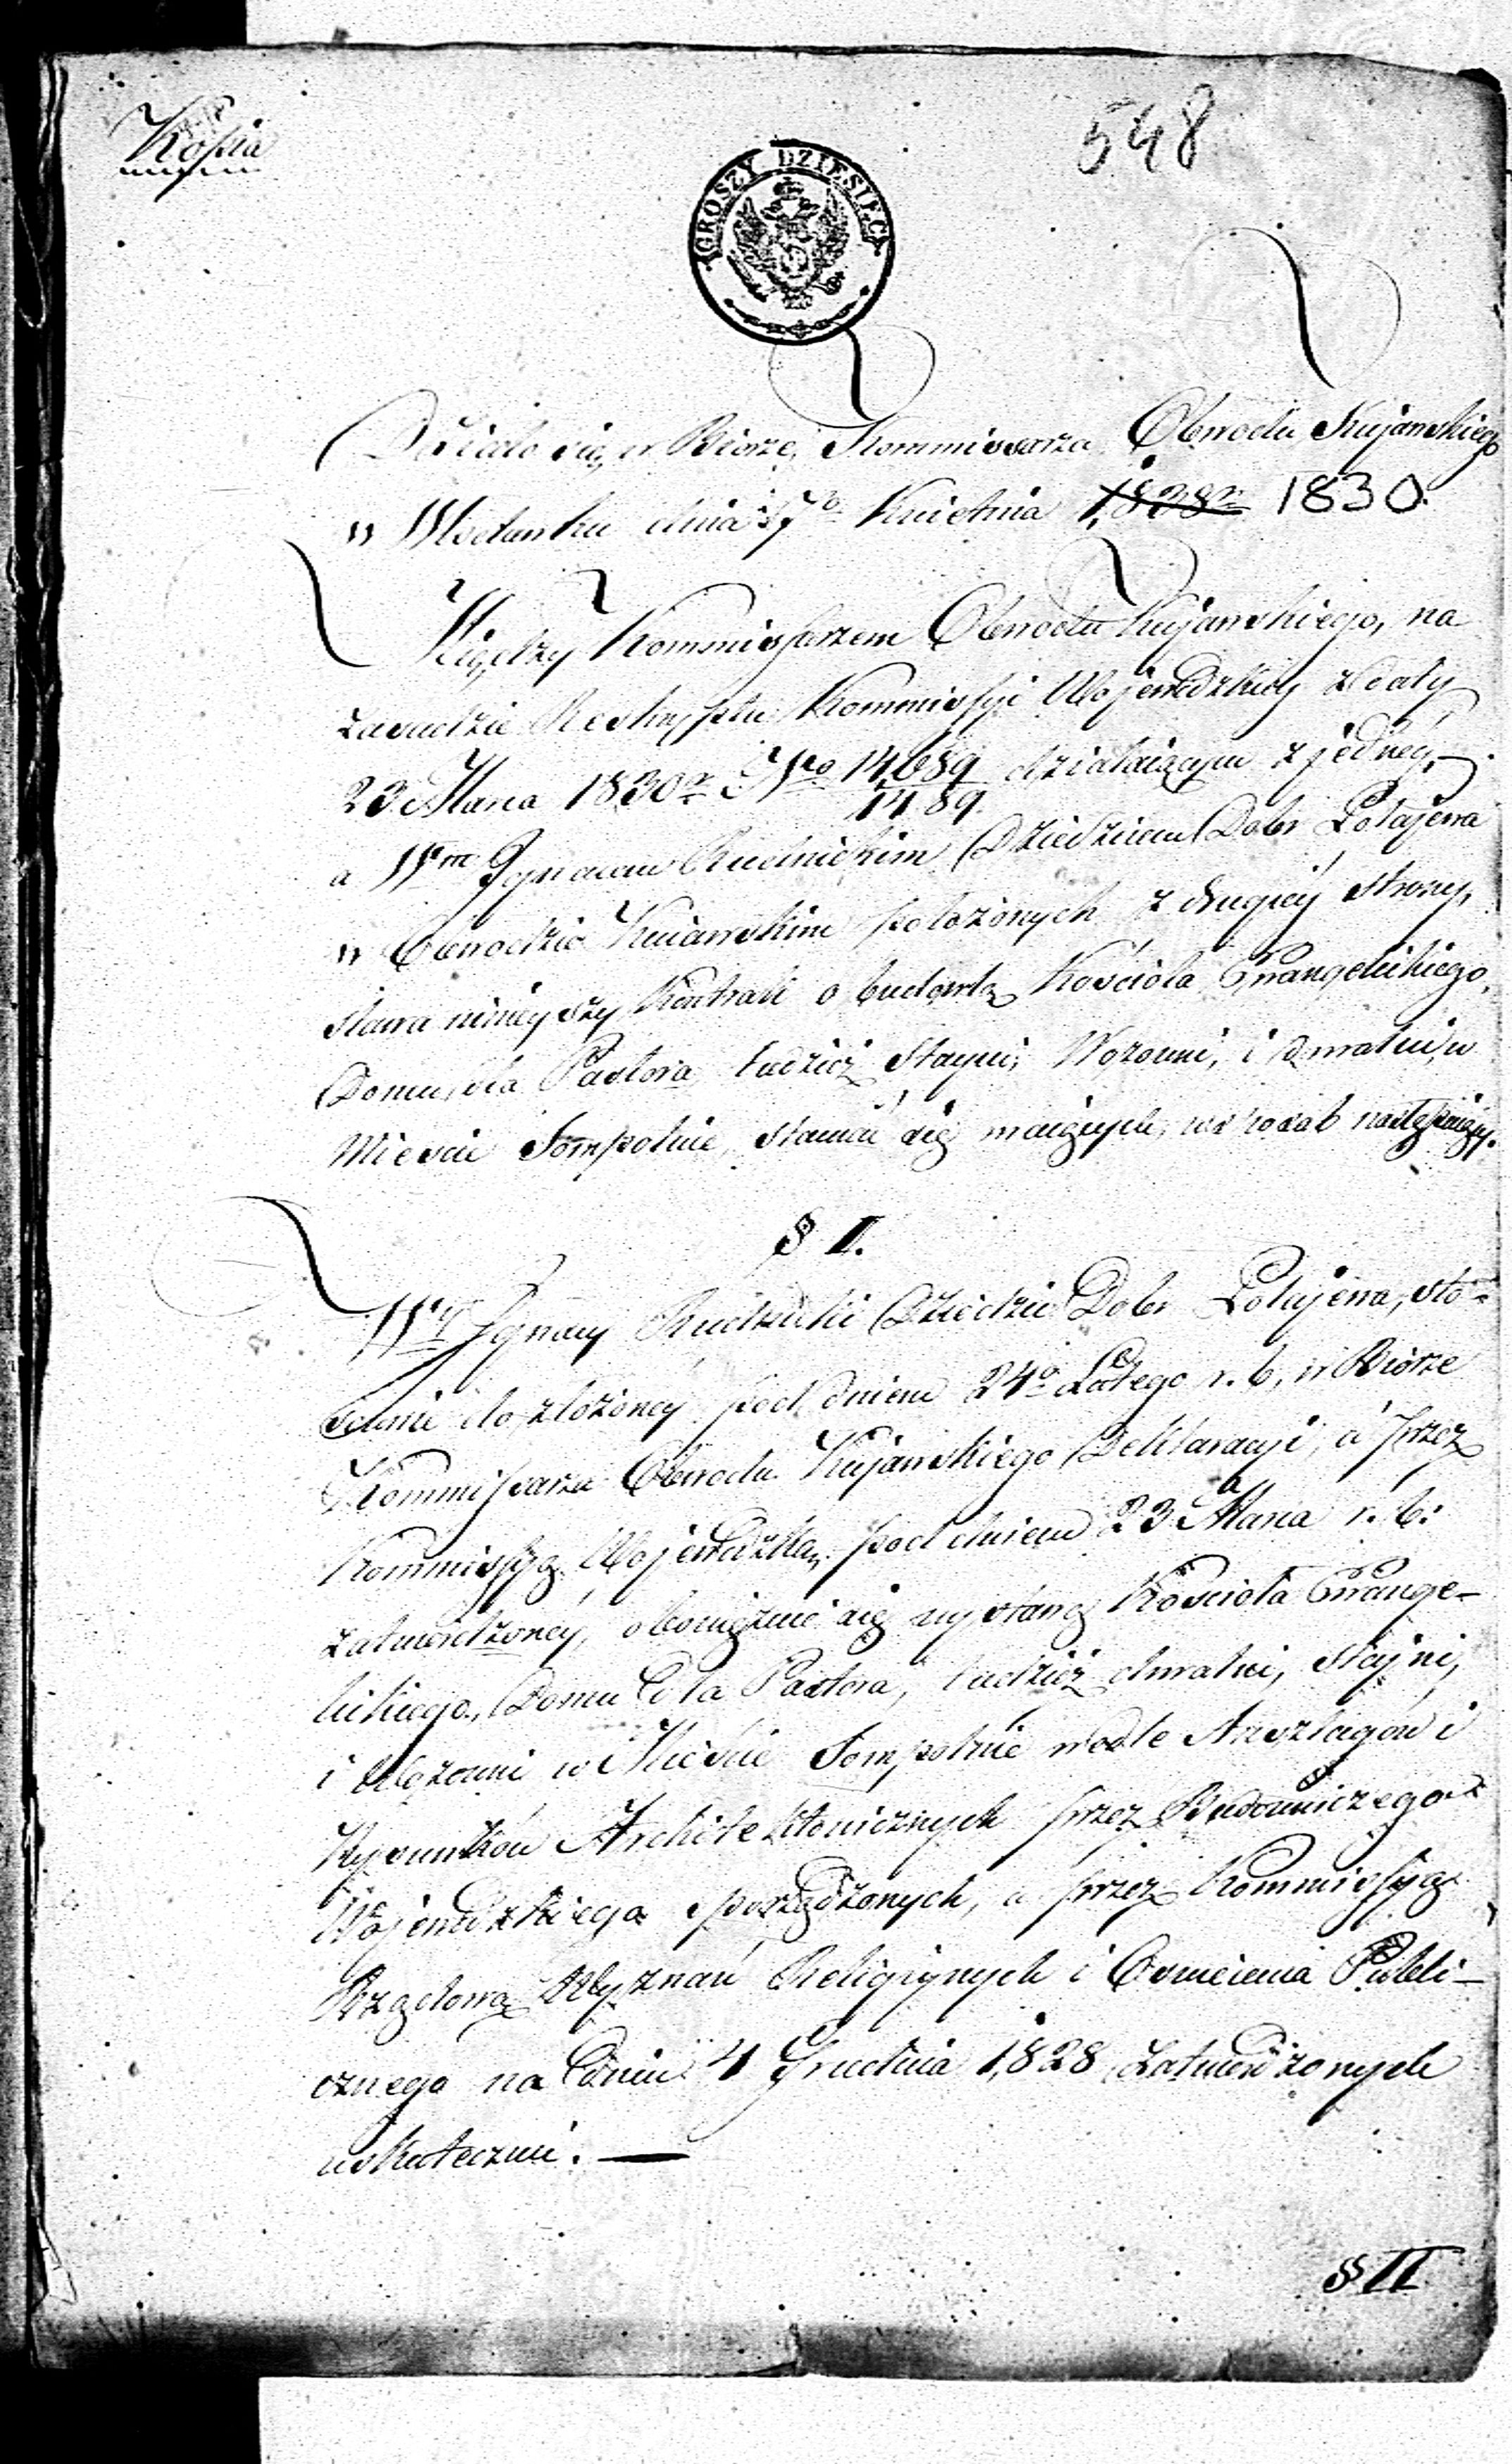 Kopia
548
GROSZY DZIESIĘĆ
Działo się w Biórze Kommissarza Obwodu Kujawskiego
w Włocławku dnia 17go Kwietnia 1828r 1830.
Między Kommissarzem Obwodu Kujawskiego, na
zasadzie Reskryptu Kommissyi Wojewódzkiey z daty
23 Marca 1830r No 14,689 działaiącym z jedney,
14.89.
a Wm Ignacem Rudnickim Dziedzicem Dobr Lotajewa
w Obwodzie Kuiawskim położonych z drugiey strony,
stawa ninieyszy Kontrakt o budowlę Kościoła Ewangelickiego,
Domu dla Pastora tudzież Stayni, Wozowni, i drwalni w
Mieście Sompolnie, stawiać się maiących, w sposób następuiący.
§ I.
Wy Ignacy Rudnicki Dziedzic Dobr Lotajewa, sto-
sownie do złożoney pod dniem 24o Lutego r. b. w Biórze
Kommissarza Obwodu Kujawskiego Deklaracyi, a przez
Kommissyą Wojewódzką pod dniem 23 Marca r. b.
zatwierdzoney, obowiązuie się wystawę Kościoła Ewange-
lickiego, Domu dla Pastora, tudzież drwalni, stajni,
i Wozowni w Mieście Sompolnie wedle Anszlagów i
Rysunków Architektonicznych przez Budowniczego
Wojewódzkiego sporządzonych, a przez Kommissyą
Rządową Wyznań Religijnych i Oświecenia Publi-
cznego na dniu 4 Grudnia 1828 zatwierdzonych
uskutecznić. —
§ II